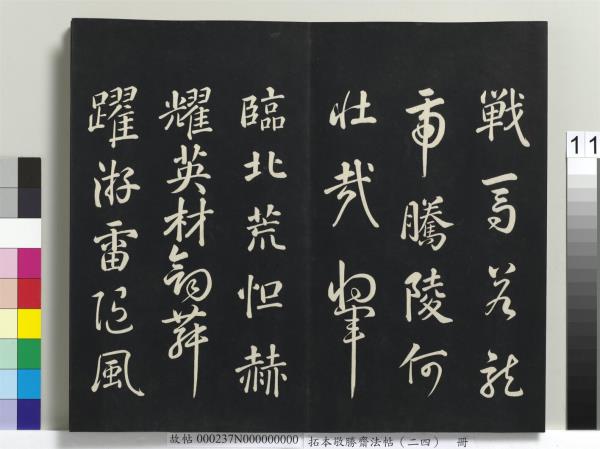 戰馬若龍
虎騰陵何
壯哉將軍
臨北荒烜赫
耀英材劍舞
躍游雷隨風
故帖 000237N000000000 拓本敬勝齋法帖（二四） 冊
11